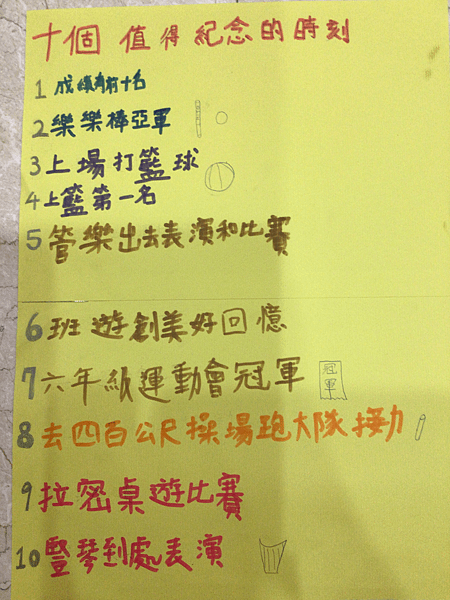 十個 值得紀念的時刻
1 成績有前十名
2 樂樂棒亞軍
3 上場打籃球
4 上籃第一名
5 管樂出去表演和比賽
6 班遊創美好回憶
7 六年級運動會冠軍
冠軍
8 去四百公尺操場跑大隊接力
9 拉密桌遊比賽
10 豎琴到處表演